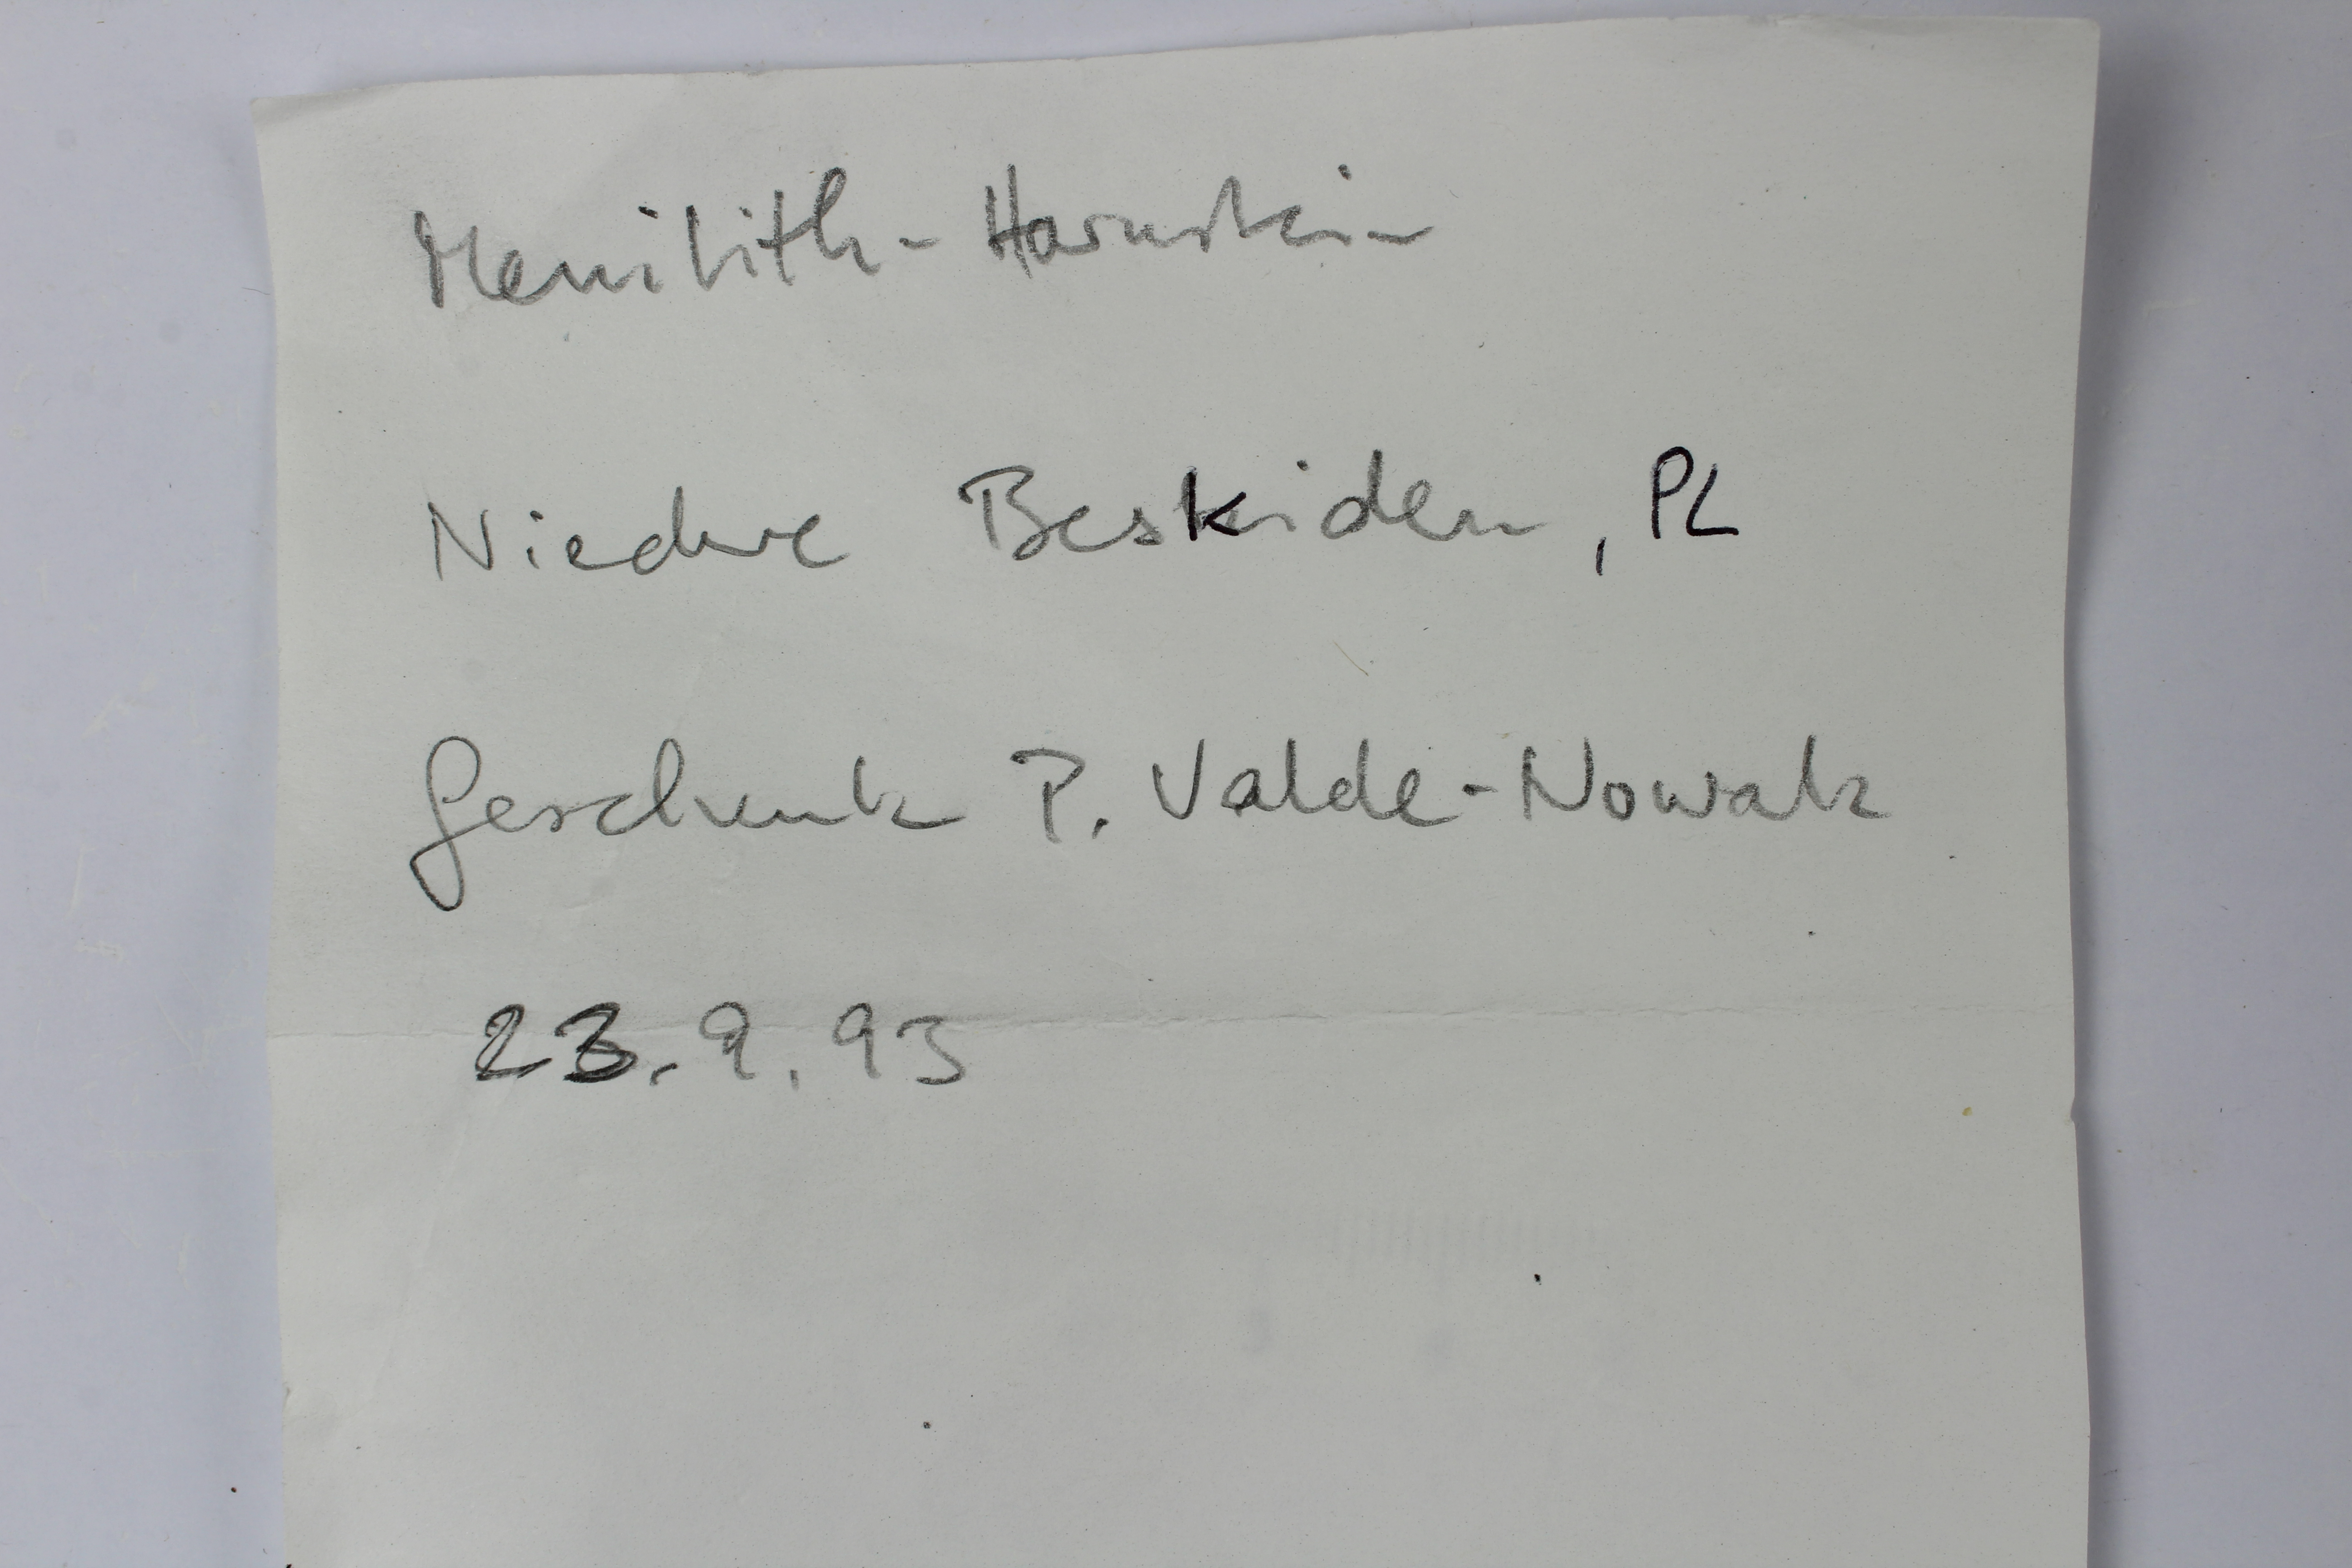 Menilith-Hornstein
Niedere Beskiden, PL
Geschenk P. Valde-Nowak
23.9.93